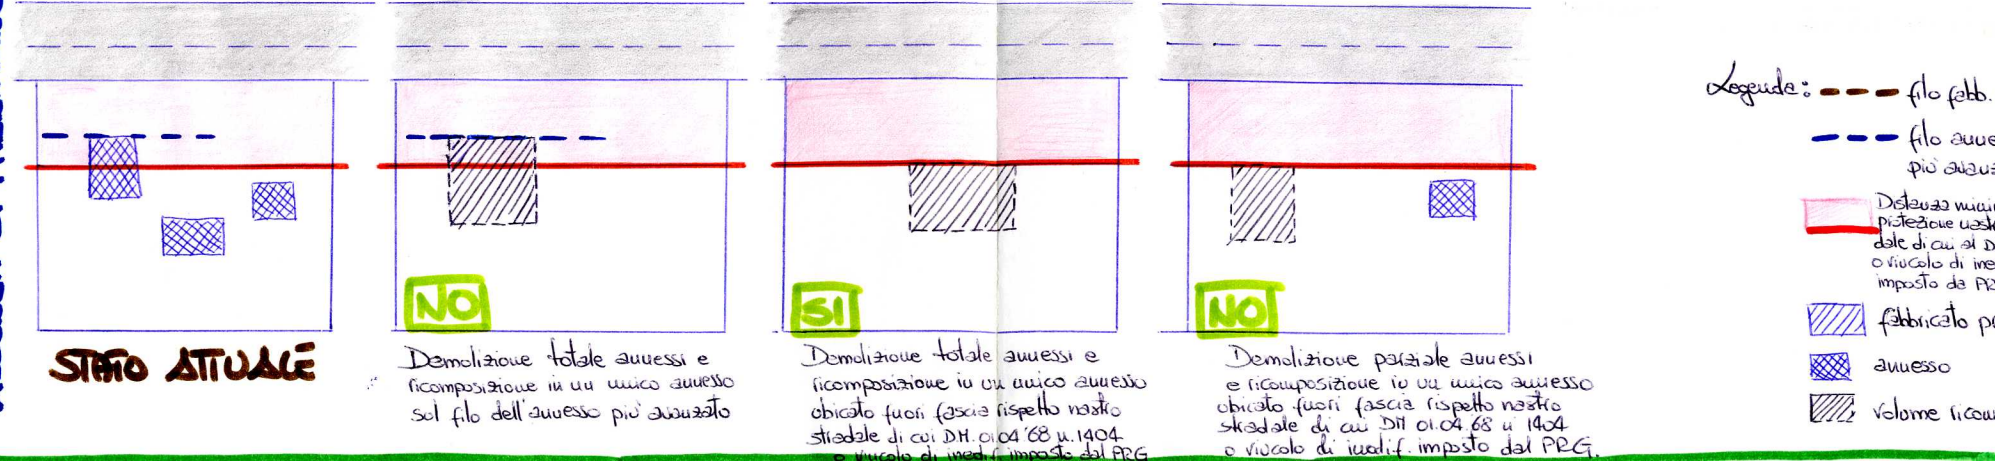 STATO ATTUALE
NO
Demolizione totale annessi e
ricomposizione in un unico annesso
sul filo dell'annesso più avanzato
SI
Demolizione totale annessi e
ricomposizione in un unico annesso
ubicato fuori fascia rispetto nastro
stradale di cui DM. 01.04'68 n. 1404
o vincolo di inedif. imposto dal PRG
NO
Demolizione parziale annessi
e ricomposizione in un unico annesso
ubicato fuori fascia rispetto nastro
stradale di cui DM 01.04.68 n 1404
o vincolo di inedif. imposto dal PRG.
Legenda:
filo fabb.
filo anne
più avanz
Distanza mini
protezione nast
dale di cui al D
o vincolo di ine
imposto da PR
fabbricato p
annesso
volume ricom